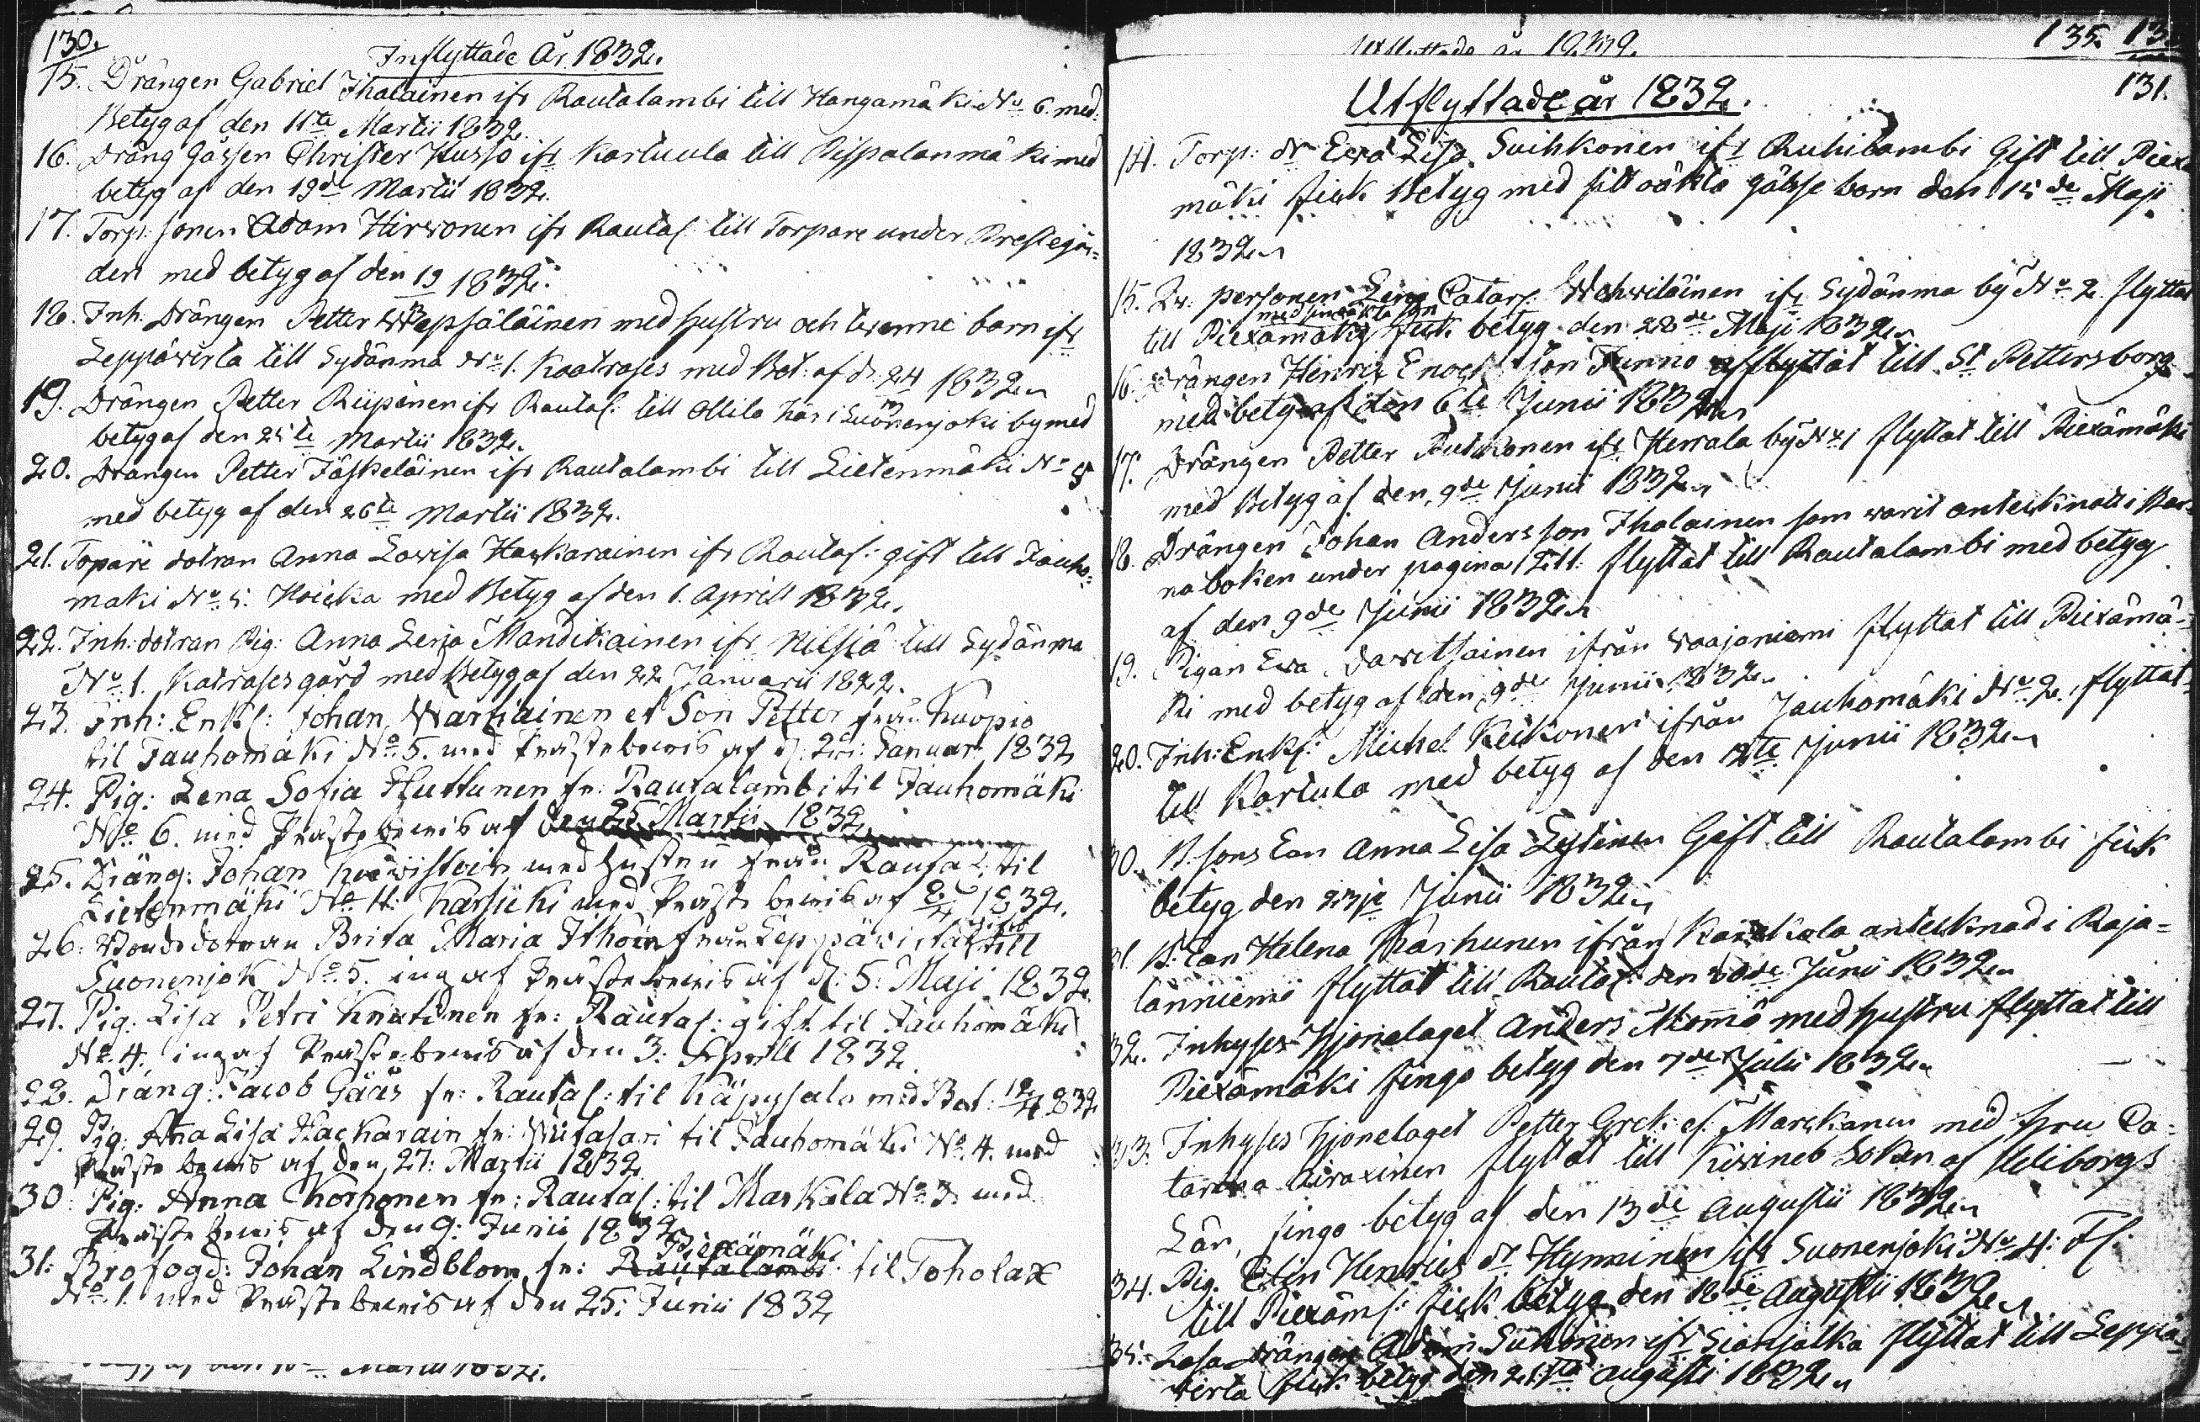 130.
Inflyttade År 1832.
15. Drängen Gabriel Ihalainen ifr Rautalambi till Hangamäki No 6. med
Betyg af den 11te Martii 1832.
16. Dräng Gåssen Christer Husso ifr Karttula till Pispalanmäki med
betyg af den 19de Martii 1832.
17. Torp: sonen Adam Hirvonen ifr Rautal: till Torpare under Prestegår=
den med betyg af den 19 1832.
18. Inh. Drängen Petter Wepsäläinen med hustru och barn ifr
Leppävirta till Sydänma No 1. Koatroses med Bet: af d. 24 1832.
19. Drängen Petter Riipinen ifr Rautal: till Ollila här i Suonenjoki by med
betyg af den 25te Martii 1832.
20. Drängen Petter Jäskeläinen ifr Rautalambi till Lietenmäki No 5
med betyg af den 26te Martii 1832.
21. Topare dotran Anna Lovisa Hackarainen ifr Rautal: gift till Jauho=
mäki No 5. med Betyg af den 1. Aprill 1832.
22. Inh: dotran Pig: Anna Lerja Manditainen ifr Nilsiä till Sydänma
No 1. Katroses gård med Betyg af den 22 Januarii 1822.
23. Inh: Enkl: Johan Wartiainen et Son Petter från Kuopio
til Jauhomäki No 5. med Prästebewis af d: Januar 1832
24. Pig: Lena Sofia Huttunen fr: Rautalambi til Jauhomäki
No 6. med Prästebewis af den 25 Martii 1832
25. Dräng: Johan med Hustru från Rautal: til
Lietenmäki No 4. Karsicki med Präste bewis af 1832.
26. Bondedotran Brita Maria från Leppävirta till
Suonenjok No 5. ing af Prästebewis af d: 5: Maji 1832.
27. Pig: Lisa Petri Knutinen fr: Rautal: gift til Jauhomäki
No 4. ing af Prästebewis af den 3: Aprill 1832.
28. Dräng: Jacob Gääs fr: Rautal: til Käpysalo med Bet: 12/4 832
29. Pig: Aña Lisa Hackarain fr: til Jauhomäki No 4. med
Präste bewis af den 27: Martii 1832
30. Pig: Anna Korhonen fr: Rautal: til Markala No 3. med
Präste bewis af den 9: Junii 1832
Piexämäki
31: Brofogd: Johan Lindblom fr: Rautalambi til Toholax
No 1. med Prästebewis af den 25: Junii 1832
Martii 1832.
Utflyttade år 1832.
135. 13
131.
Utflyttade år 1832.
14. Torp: dr Ewa Lisa Suihkonen ifr Ruhilambi Gift till Piexä
mäki fick Betyg med sitt oäkta gåsse barn den 15de Maji
1832
15. Qv: personen Lena Catar: Wehwiläinen ifr Sydänma by No 2 flyttat
med sin oäkta son
till Piexämäki fick betyg den 28de Maji 1832
16. Drängen Henrik Enoc son Funno afflyttat till St Pettersborg
med betyg af den 6te Junii 1832
17. Drängen Petter Putkonen ifr Herrala by No 1 flyttat till Piexämäki
med Betyg af den 9de Junii 1832
18. Drängen Johan Andersson Ihalainen som warit antecknat i Bar=
naboken under pagina flyttat till Rautalambi med betyg
af den 9de Junii 1832
19. Pigan Ewa Dawitsainen ifrån Waajaniemi flyttat till Piexämä=
ki med betyg af den 9de Junii 1832
20. Inh: Enkl: Michel Keikonen ifrån Jauhomäki No 2. flyttat
till Kartula med betyg af den 12te Junii 1832
30. B. sons Ean Anna Lisa Lytinen Gift till Rautalambi fick
betyg den 23je Junii 1832
31. B: Ean Helena Karhunen ifrån Karckala antecknad i Raja=
lanniemi flyttat till Rautal: den Junii 1832
32. Inhyses Hjonelaget Anders Momö med hustru flyttat till
Piexämäki fingo betyg den 7de Julii 1832
33. Inhyses hjonelaget Petter Grek: el. Marckanen med hru Ca=
tarina flyttat till Kivineb Sokn af Wiborgs
Län, fingo betyg af den 13de Augustii 1832
34. Pig. Elin Henrics dr Hynninen ifr Suonenjoki No 4: Fl:
till Piexäm: fick betyg den 18de Augustii 1832
35. Lösa Drängen Adam Suhonen ifr flyttat till Leppä=
virta fick betyg den 21sta augusti 1832